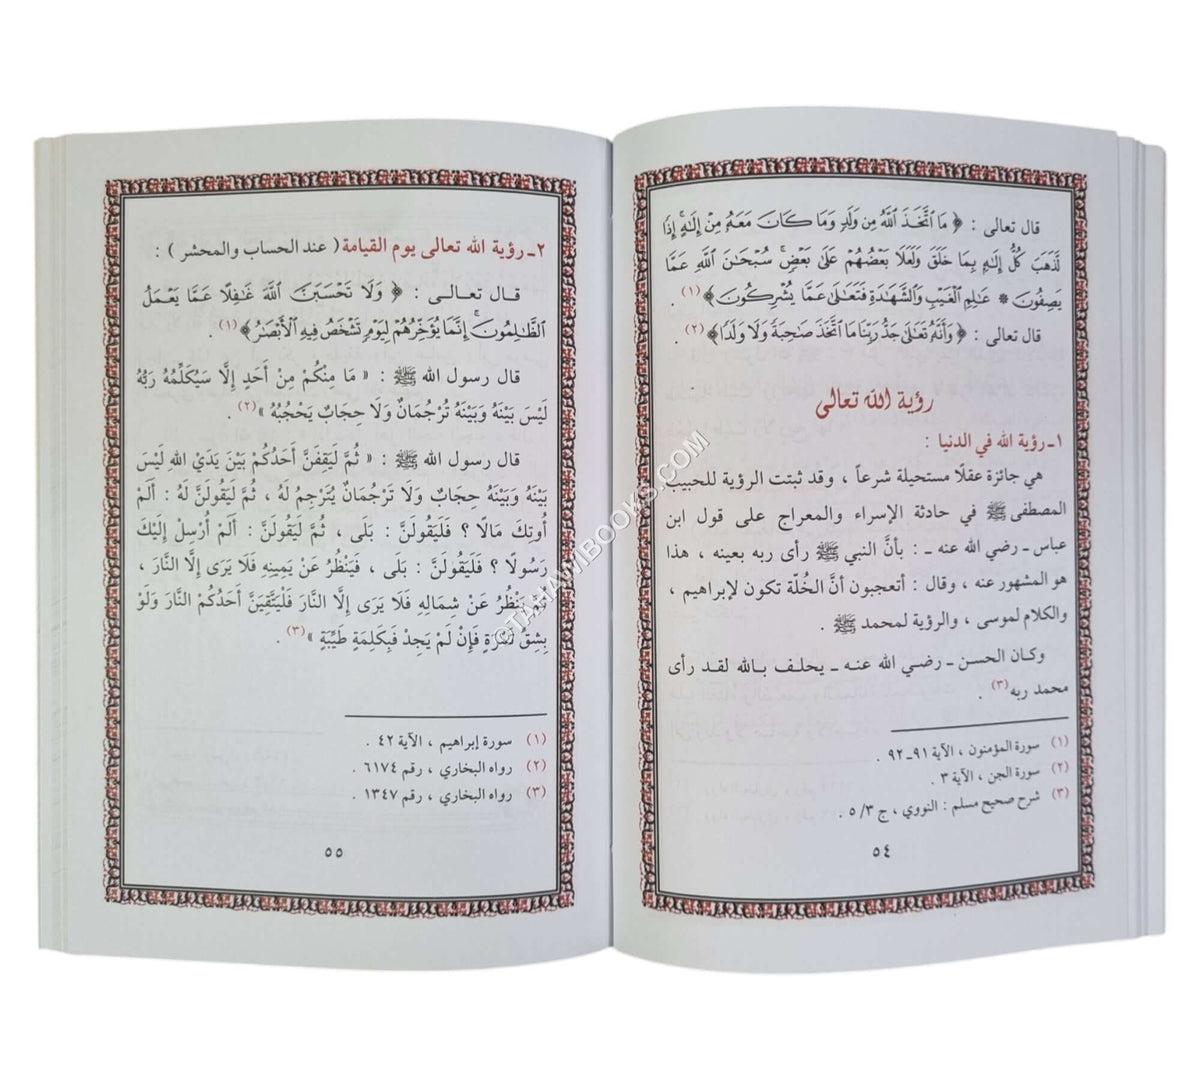 قال تعالى : ﴿ مَا ٱتَّخَذَ ٱللَّهُ مِن وَلَدٍ وَمَا كَانَ مَعَهُ مِنْ إِلَٰهٍ ۚ إِذًا
لَّذَهَبَ كُلُّ إِلَٰهٍ بِمَا خَلَقَ وَلَعَلَا بَعْضُهُمْ عَلَىٰ بَعْضٍ ۚ سُبْحَٰنَ ٱللَّهِ عَمَّا
يَصِفُونَ * عَٰلِمِ ٱلْغَيْبِ وَٱلشَّهَٰدَةِ فَتَعَٰلَىٰ عَمَّا يُشْرِكُونَ ﴾ (١) .
قال تعالى : ﴿ وَأَنَّهُۥ تَعَٰلَىٰ جَدُّ رَبِّنَا مَا ٱتَّخَذَ صَٰحِبَةً وَلَا وَلَدًا ﴾ (٢) .
رؤية الله تعالى
١ـ رؤية الله في الدنيا :
هي جائزة عقلًا مستحيلة شرعاً ، وقد ثبتت الرؤية للحبيب
المصطفى ﷺ في حادثة الإسراء والمعراج على قول ابن
عباس ـ رضي الله عنه ـ : بأنَّ النبي ﷺ رأى ربه بعينه ، هذا
هو المشهور عنه ، وقال : أتعجبون أنَّ الخُلّة تكون لإبراهيم ،
والكلام لموسى ، والرؤية لمحمد ﷺ .
وكان الحسن ـ رضي الله عنه ـ يحلف بالله لقد رأى
محمد ربه (٣) .
(١) سورة المؤمنون ، الآية ٩١ـ٩٢ .
(٢) سورة الجن ، الآية ٣ .
(٣) شرح صحيح مسلم : النووي ، ج ٣/ ٥ .
٥٤
٢ـ رؤية الله تعالى يوم القيامة ( عند الحساب والمحشر ) :
قال تعالى : ﴿ وَلَا تَحْسَبَنَّ ٱللَّهَ غَٰفِلًا عَمَّا يَعْمَلُ
ٱلظَّٰلِمُونَ ۚ إِنَّمَا يُؤَخِّرُهُمْ لِيَوْمٍ تَشْخَصُ فِيهِ ٱلْأَبْصَٰرُ ﴾ (١) .
قال رسول الله ﷺ : « مَا مِنْكُمْ مِنْ أَحَدٍ إِلَّا سَيُكَلِّمُهُ رَبُّهُ
لَيْسَ بَيْنَهُ وَبَيْنَهُ تُرْجُمَانٌ وَلَا حِجَابٌ يَحْجُبُهُ » (٢) .
قال رسول الله ﷺ : « ثُمَّ لَيَقِفَنَّ أَحَدُكُمْ بَيْنَ يَدَيْ اللهِ لَيْسَ
بَيْنَهُ وَبَيْنَهُ حِجَابٌ وَلَا تَرْجُمَانٌ يُتَرْجِمُ لَهُ ، ثُمَّ لَيَقُولَنَّ لَهُ : أَلَمْ
أُوتِكَ مَالًا ؟ فَلَيَقُولَنَّ : بَلَى ، ثُمَّ لَيَقُولَنَّ : أَلَمْ أُرْسِلْ إِلَيْكَ
رَسُولًا ؟ فَلَيَقُولَنَّ : بَلَى ، فَيَنْظُرُ عَنْ يَمِينِهِ فَلَا يَرَى إِلَّا النَّارَ ،
ثُمَّ يَنْظُرُ عَنْ شِمَالِهِ فَلَا يَرَى إِلَّا النَّارَ فَلْيَتَّقِيَنَّ أَحَدُكُمْ النَّارَ وَلَوْ
بِشِقِّ تَمْرَةٍ فَإِنْ لَمْ يَجِدْ فَبِكَلِمَةٍ طَيِّبَةٍ » (٣) .
(١) سورة إبراهيم ، الآية ٤٢ .
(٢) رواه البخاري ، رقم ٦١٧٤ .
(٣) رواه البخاري ، رقم ١٣٤٧ .
٥٥
©TAHAMIBOOKS.COM